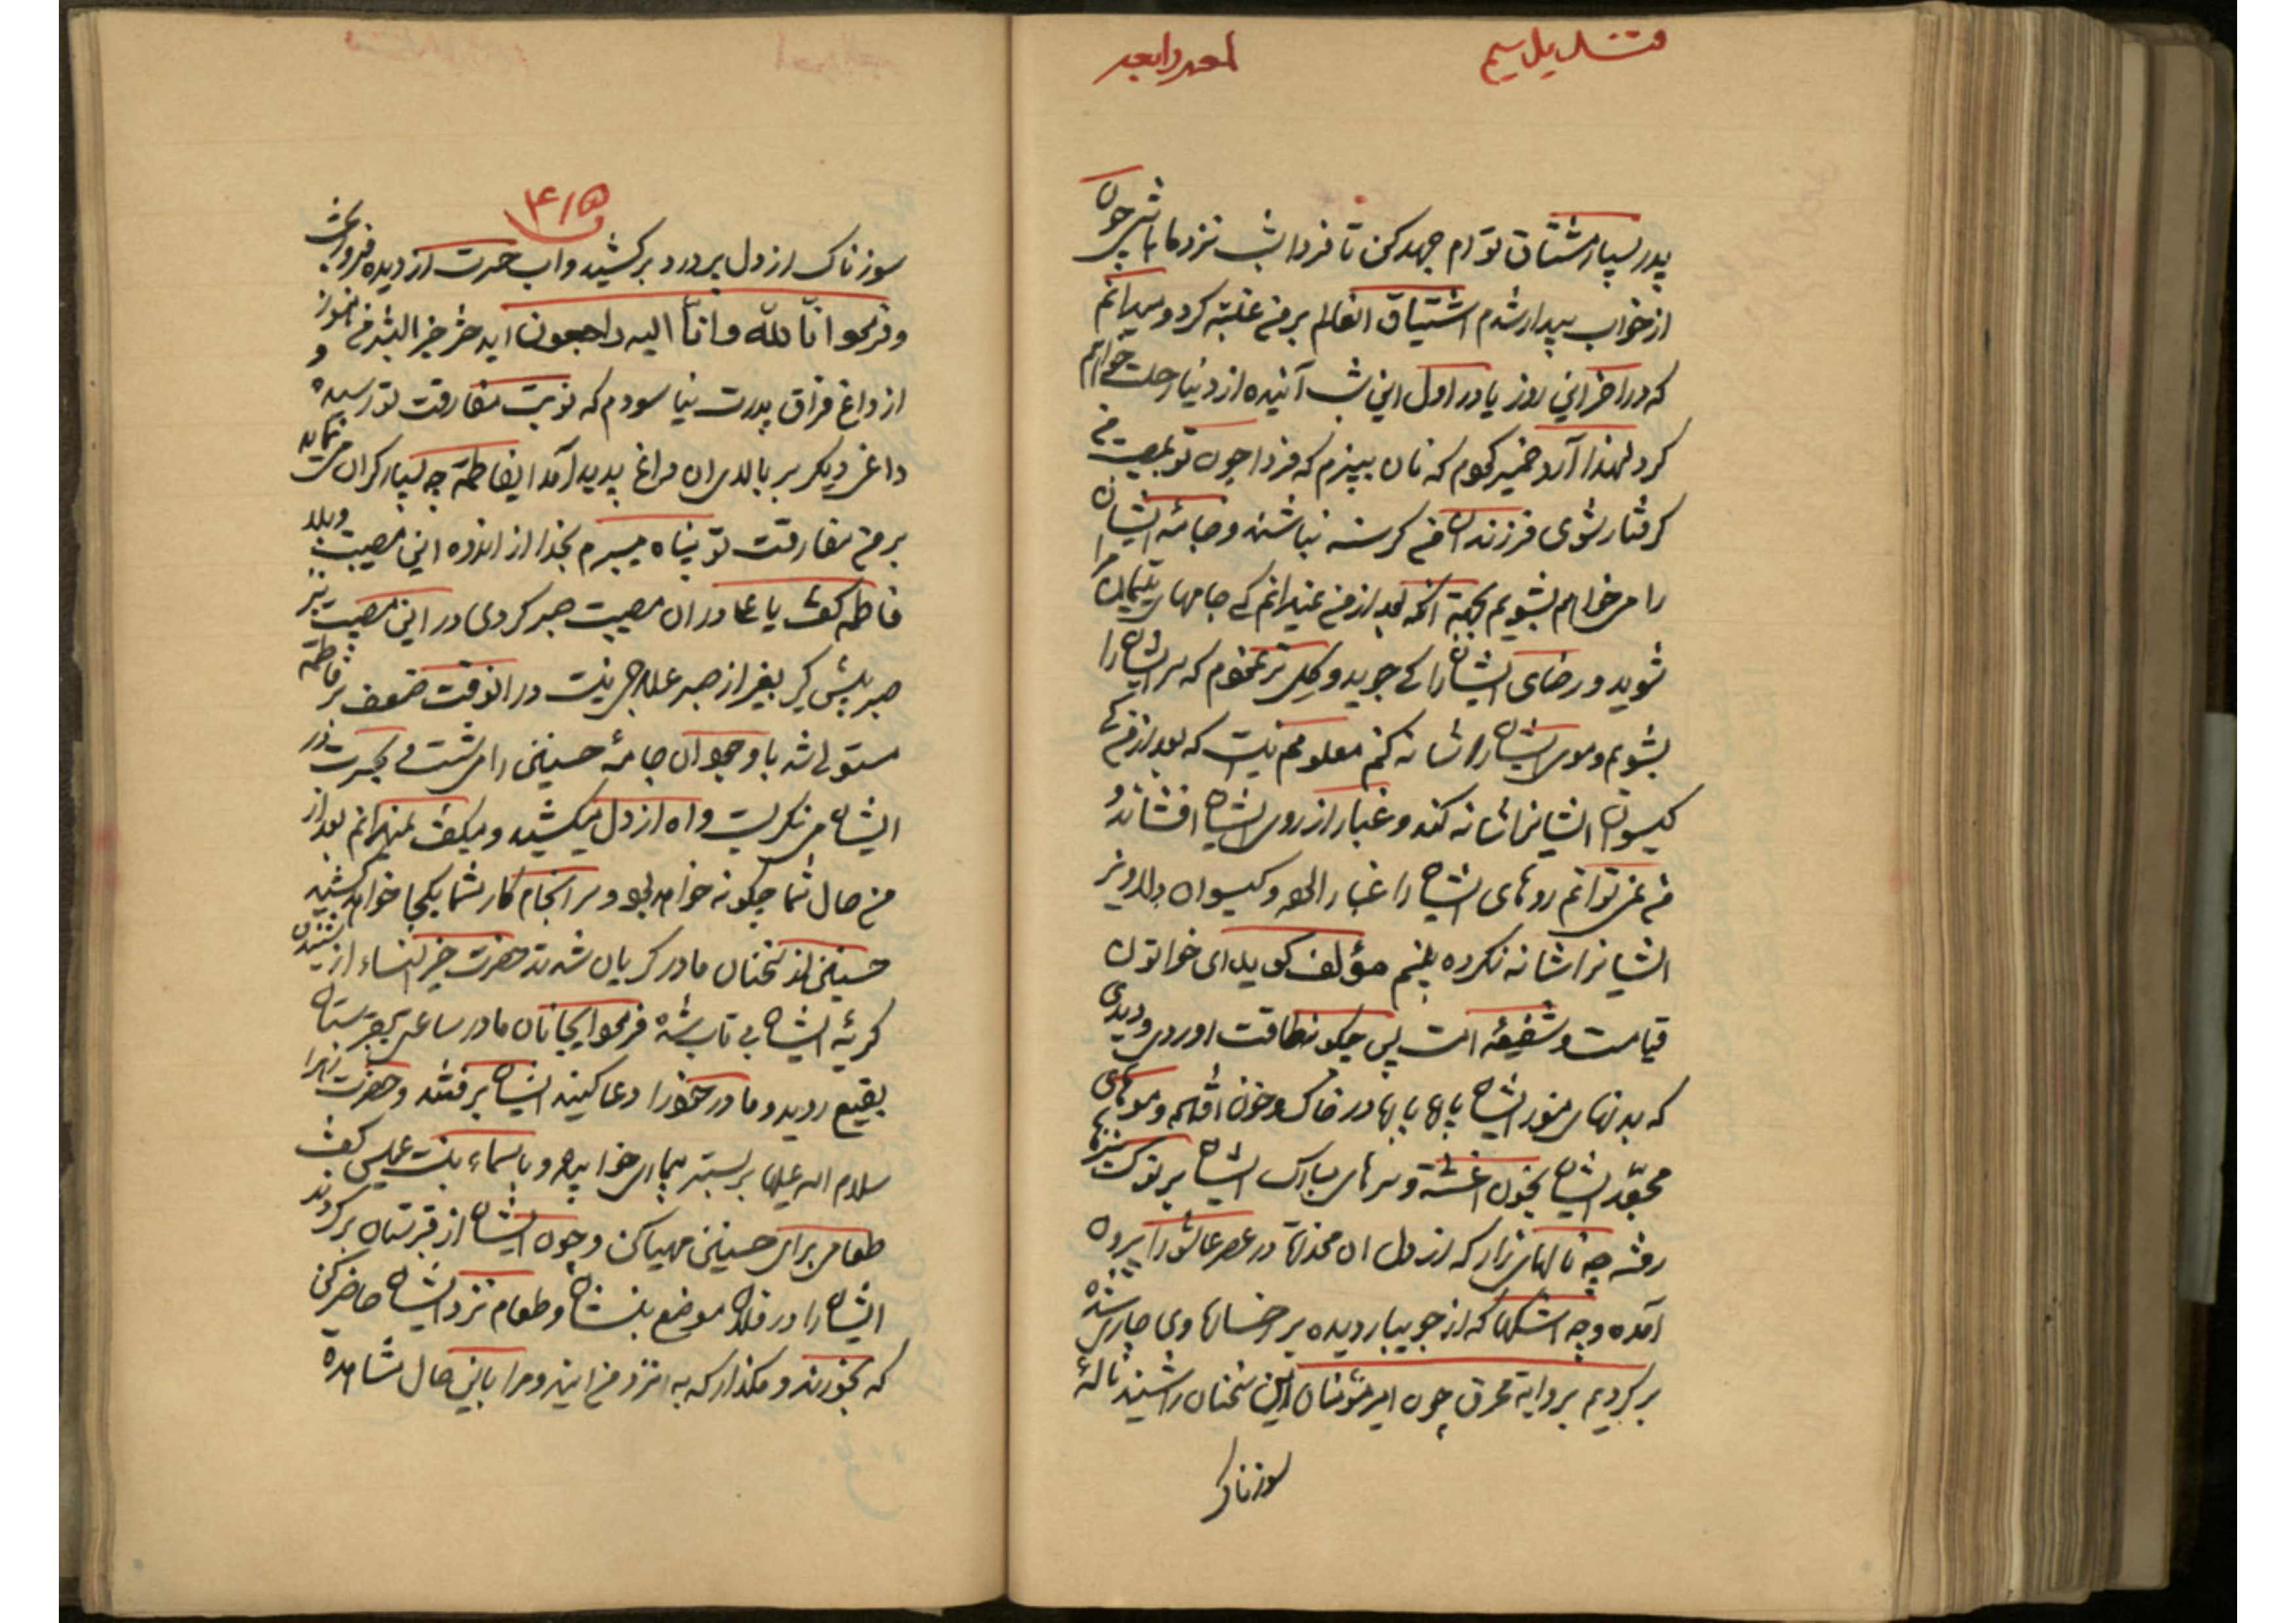 پدر بسیار مشتاق توام جهد کن تا فردا شب نزد ما باشی چون
از خواب بیدار شدم اشتیاق انعالم بر من غلبه کرد و میدانم
که در اخر این روز یا در اول این شب آینده از دنیا رحلت خواهم
کرد لهذا آرد خمیر کردم که نان بپزم که فردا چون تو بمصیبت من
کرفتار شوی فرزندان من کرسنه نباشند و جامۀ ایشان
را میخواهم بشویم بجهة آنکه بعد از من نمیدانم که جامهای یتیمان مرا
شوید و رضای ایشانرا که جوید و کل تر نمودم که سر ایشانرا
بشویم و موی ایشان را شانه کنم معلومم نیست که بعد از من که
کیسوان ایشانرا شانه کند و غبار از روی ایشان افشاند
من نمی توانم روهای ایشان را غبار الود و کیسوان دلاویز
ایشانرا شانه نکرده بینم مؤلف کوید ای خواتون
قیامت و شفیعۀ امت پس چکونه طاقت اوردی و دیدی
که بدنهای منور ایشان در خاک و خون افتاده و موهای
مجعّد ایشان بخون اغشته و سرهای مبارک ایشان بر نوک نیزها
رفته چه نالهای زار که از دل ان مخدره در عصر عاشورا بیرون
آمده و چه اشکها که از جویبار دیده بر رخسارهای وی جاری شده
بر کردیم بروایة محرق چون امیر مؤمنان این سخنان را شنید نالۀ
سوزناک
سوزناک از دل پر درد برکشید و اب حسرت از دیده فرو ریخت
و فرمود انّا للّه و انّا الیه راجعون ایدختر خیر البشر من هنوز
از داغ فراق پدرت نیاسودم که نوبت مفارقت تو رسید و
داغی دیکر بر بالای ان داغ پدید آمد ایفاطمة چه بسیار کران می نماید
بر من مفارقت تو پناه میبرم بخدا از اندوه این مصیبت و بلا
فاطمه کفت یا علی در ان مصیبت صبر کردی در این مصیبت نیز
صبر پیش کیر بغیر از صبر علاجی نیست در انوقت ضعف بر فاطمة
مستولی شد با وجود ان جامۀ حسنین را می شست و بحسرت در
ایشان می نکریست و اه از دل میکشید و میکفت نمیدانم بعد از
من حال شما چکونه خواهد بود و سر انجام کار شما بکجا خواهد کشید
حسنین از سخنان مادر کریان شدند حضرت خیر النساء از شنیدن
کریۀ ایشان بی تاب شده فرمود ایجانان مادر ساعتی بقبرستان
بقیع روید و مادر خود را دعا کنید ایشان برفتند و حضرت زهرا
سلام الله علیها بر بستر بیماری خوابید و باسماء بنت عمیس کفت
طعامی برای حسنین مهیا کن و چون ایشان از قبرستان برکردند
ایشان را در فلان موضع بنشان و طعام نزد ایشان حاضر کن
که بخورند و مکذار که به نزد من ایند و مرا باین حال مشاهده